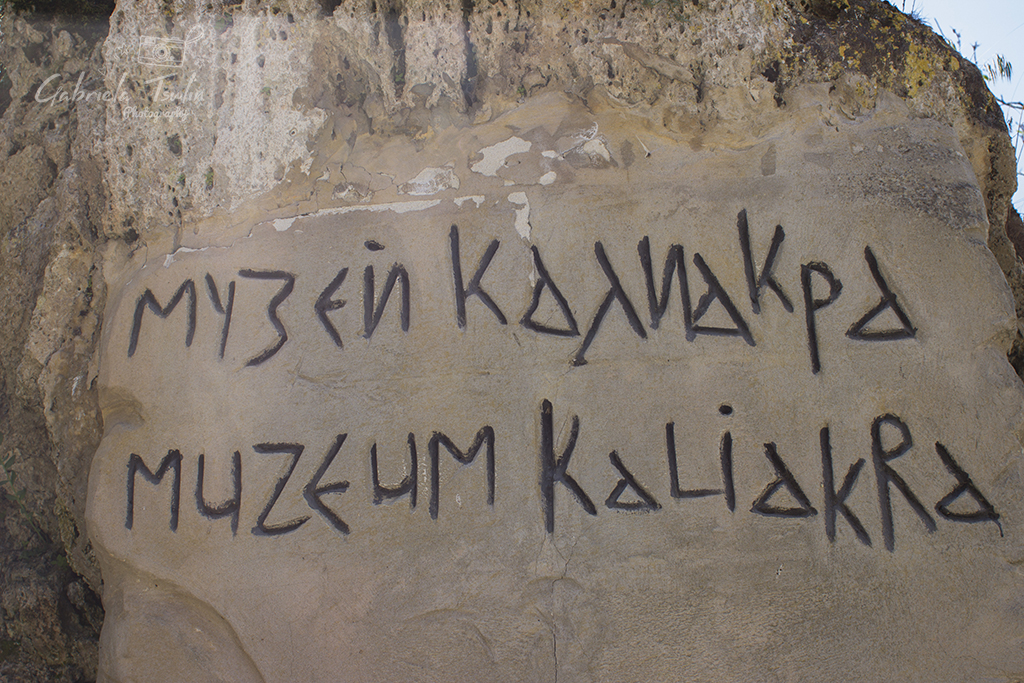 Gabriela Tsulia
Photography
музей Калиакра
muzeum Kaliakra